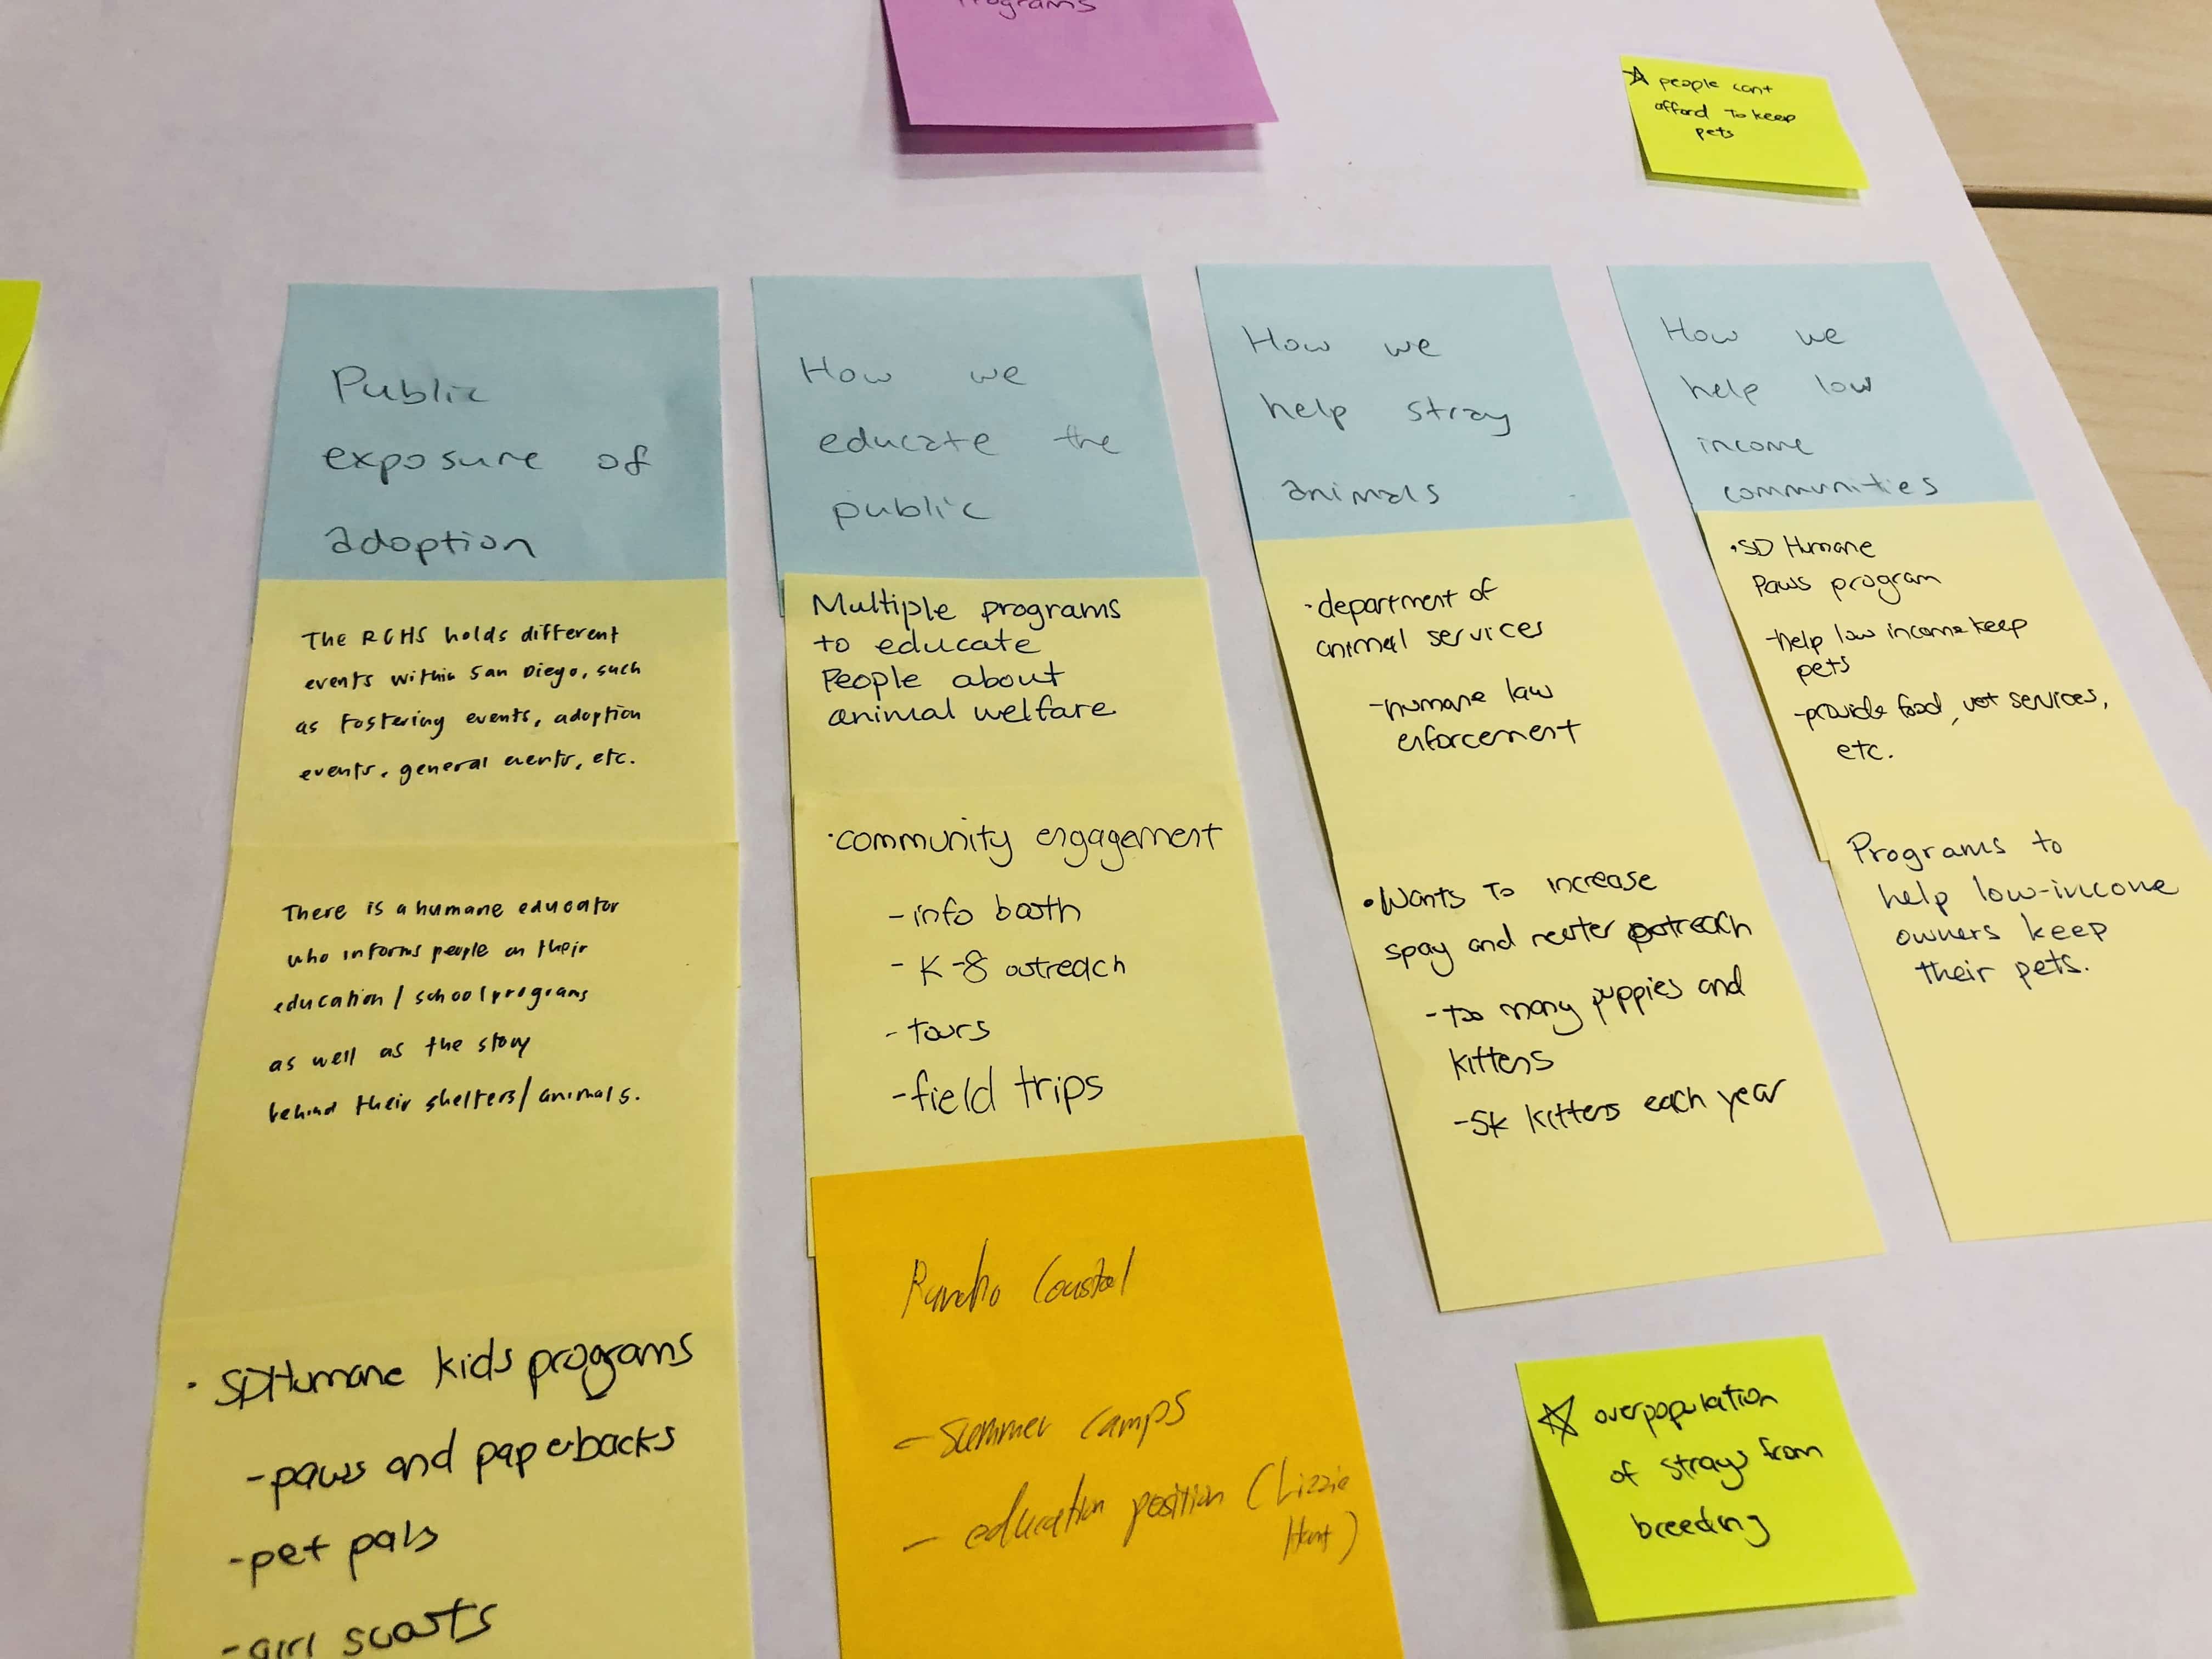 Programs
☆ people cant
afford to keep
pets
Public
exposure of
adoption
The RCHS holds different
events within San Diego, such
as fostering events, adoption
events, general events, etc.
There is a humane educator
who informs people on their
education / school programs
as well as the story
behind their shelters/animals.
· SDHumane kids programs
-paws and paperbacks
-pet pals
-girl scouts
How we
educate the
public
Multiple programs
to educate
People about
animal welfare
·community engagement
- info booth
- K-8 outreach
- tours
-field trips
Rancho Coastal
- summer camps
- education position (Lizzie
How we
help stray
animals
·department of
animal services
-humane law
enforcement
•Wants to increase
spay and neuter outreach
-too many puppies and
kittens
-5k kittens each year
☆ overpopulation
of strays from
breeding
How we
help low
income
communities
•SD Humane
Paws program
-help low income keep
pets
-provide food, vet services,
etc.
Programs to
help low-income
owners keep
their pets.